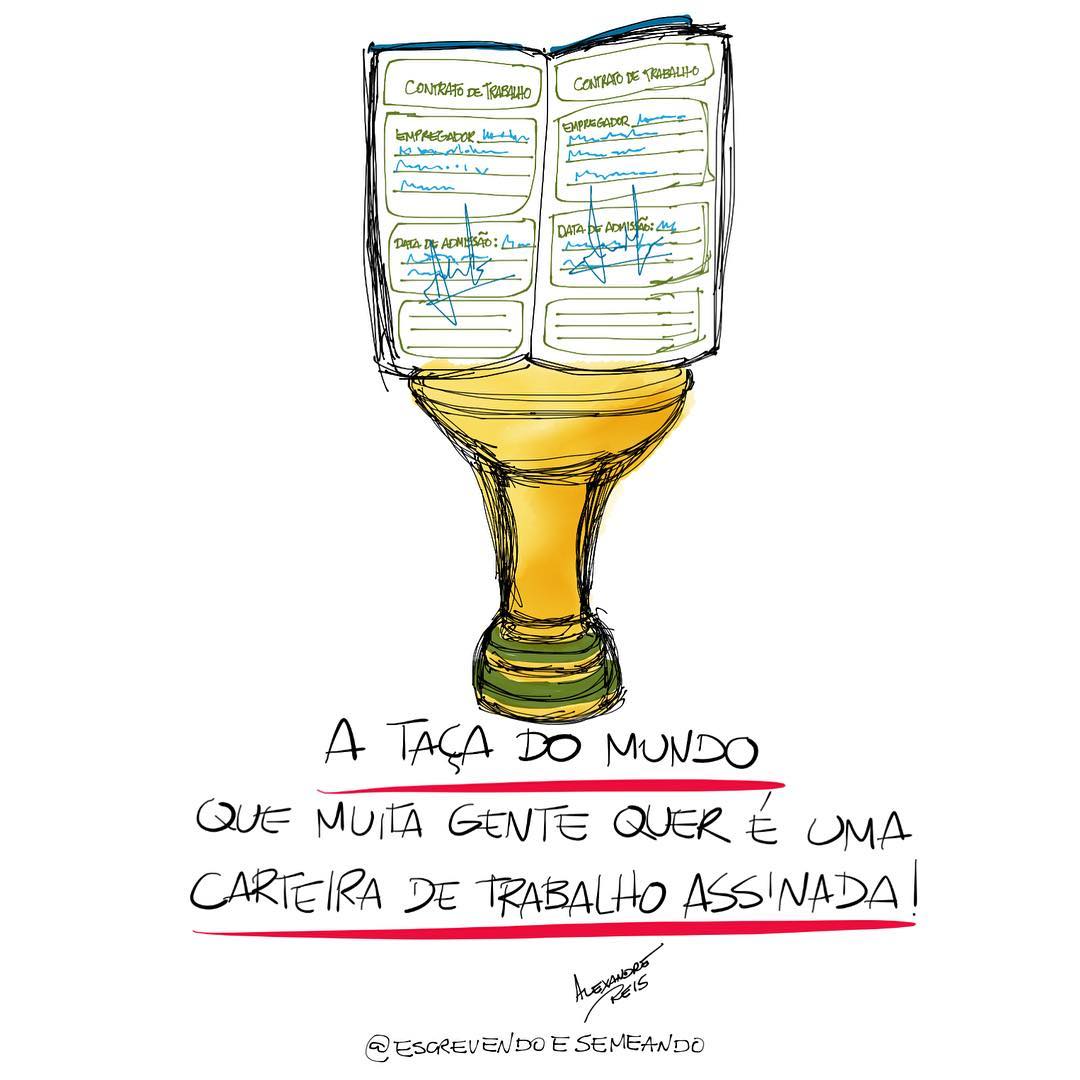 CONTRATO DE TRABALHO
EMPREGADOR
DATA DE ADMISSÃO:
CONTRATO DE TRABALHO
EMPREGADOR
DATA DE ADMISSÃO:
A TAÇA DO MUNDO
QUE MUITA GENTE QUER É UMA
CARTEIRA DE TRABALHO ASSINADA!
ALEXANDRE
REIS
@ESCREVENDOESEMEANDO